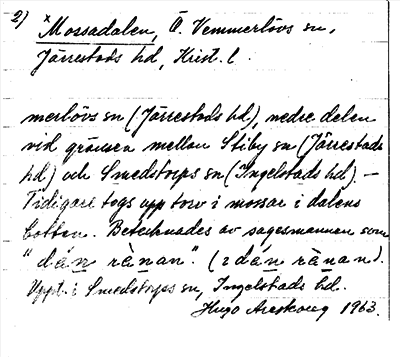 2) ×Mossadalen, Ö. Vemmerlövs sn,
Järrestads hd, Krist. l.
merlövs sn (Järrestads hd), nedre delen
vid gränsen mellan Stiby sn (Järrestads
hd) och Smedstorps sn (Ingelstads hd). –
Tidigare togs upp torv i mossar i dalens
botten. Betecknades av sagesmannen som
"dán rànan". (2 dán rànan).
Uppt. i Smedstorps sn, Ingelstads hd.
Hugo Areskoug 1963.